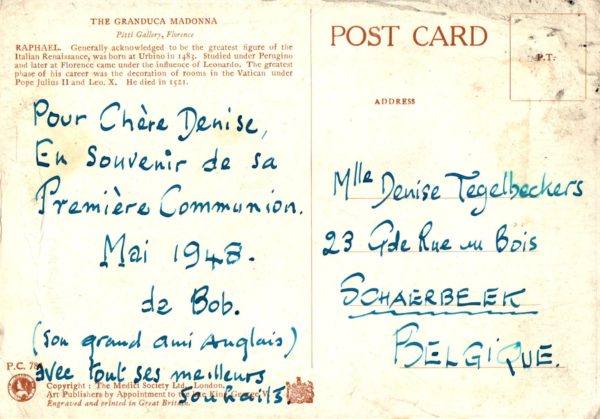 THE GRANDUCA MADONNA
Pitti Gallery, Florence
RAPHAEL. Generally acknowledged to be the greatest figure of the
Italian Renaissance, was born at Urbino in 1483. Studied under Perugino
and later at Florence came under the influence of Leonardo. The greatest
phase of his career was the decoration of rooms in the Vatican under
Pope Julius II and Leo. X. He died in 1521.
Pour Chère Denise,
En Souvenir de sa
Première Communion.
Mai 1948.
de Bob.
(son grand ami Anglais)
avec tout ses meilleurs
souhaits
P.C. 
Copyright: The Medici Society Ltd., London.
Art Publishers by Appointment to the late King George V
Engraved and printed in Great Britain.
POST CARD
P.T.
ADDRESS
Mlle Denise Tegelbeckers
23 Gde Rue au Bois
SCHAERBEEK
BELGIQUE.